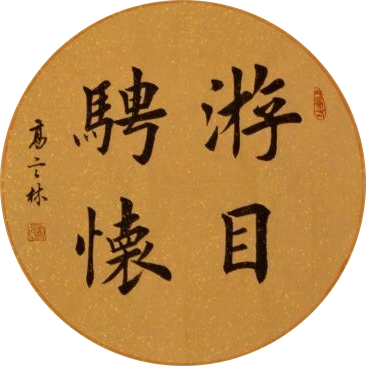 游目
騁懷
高云林